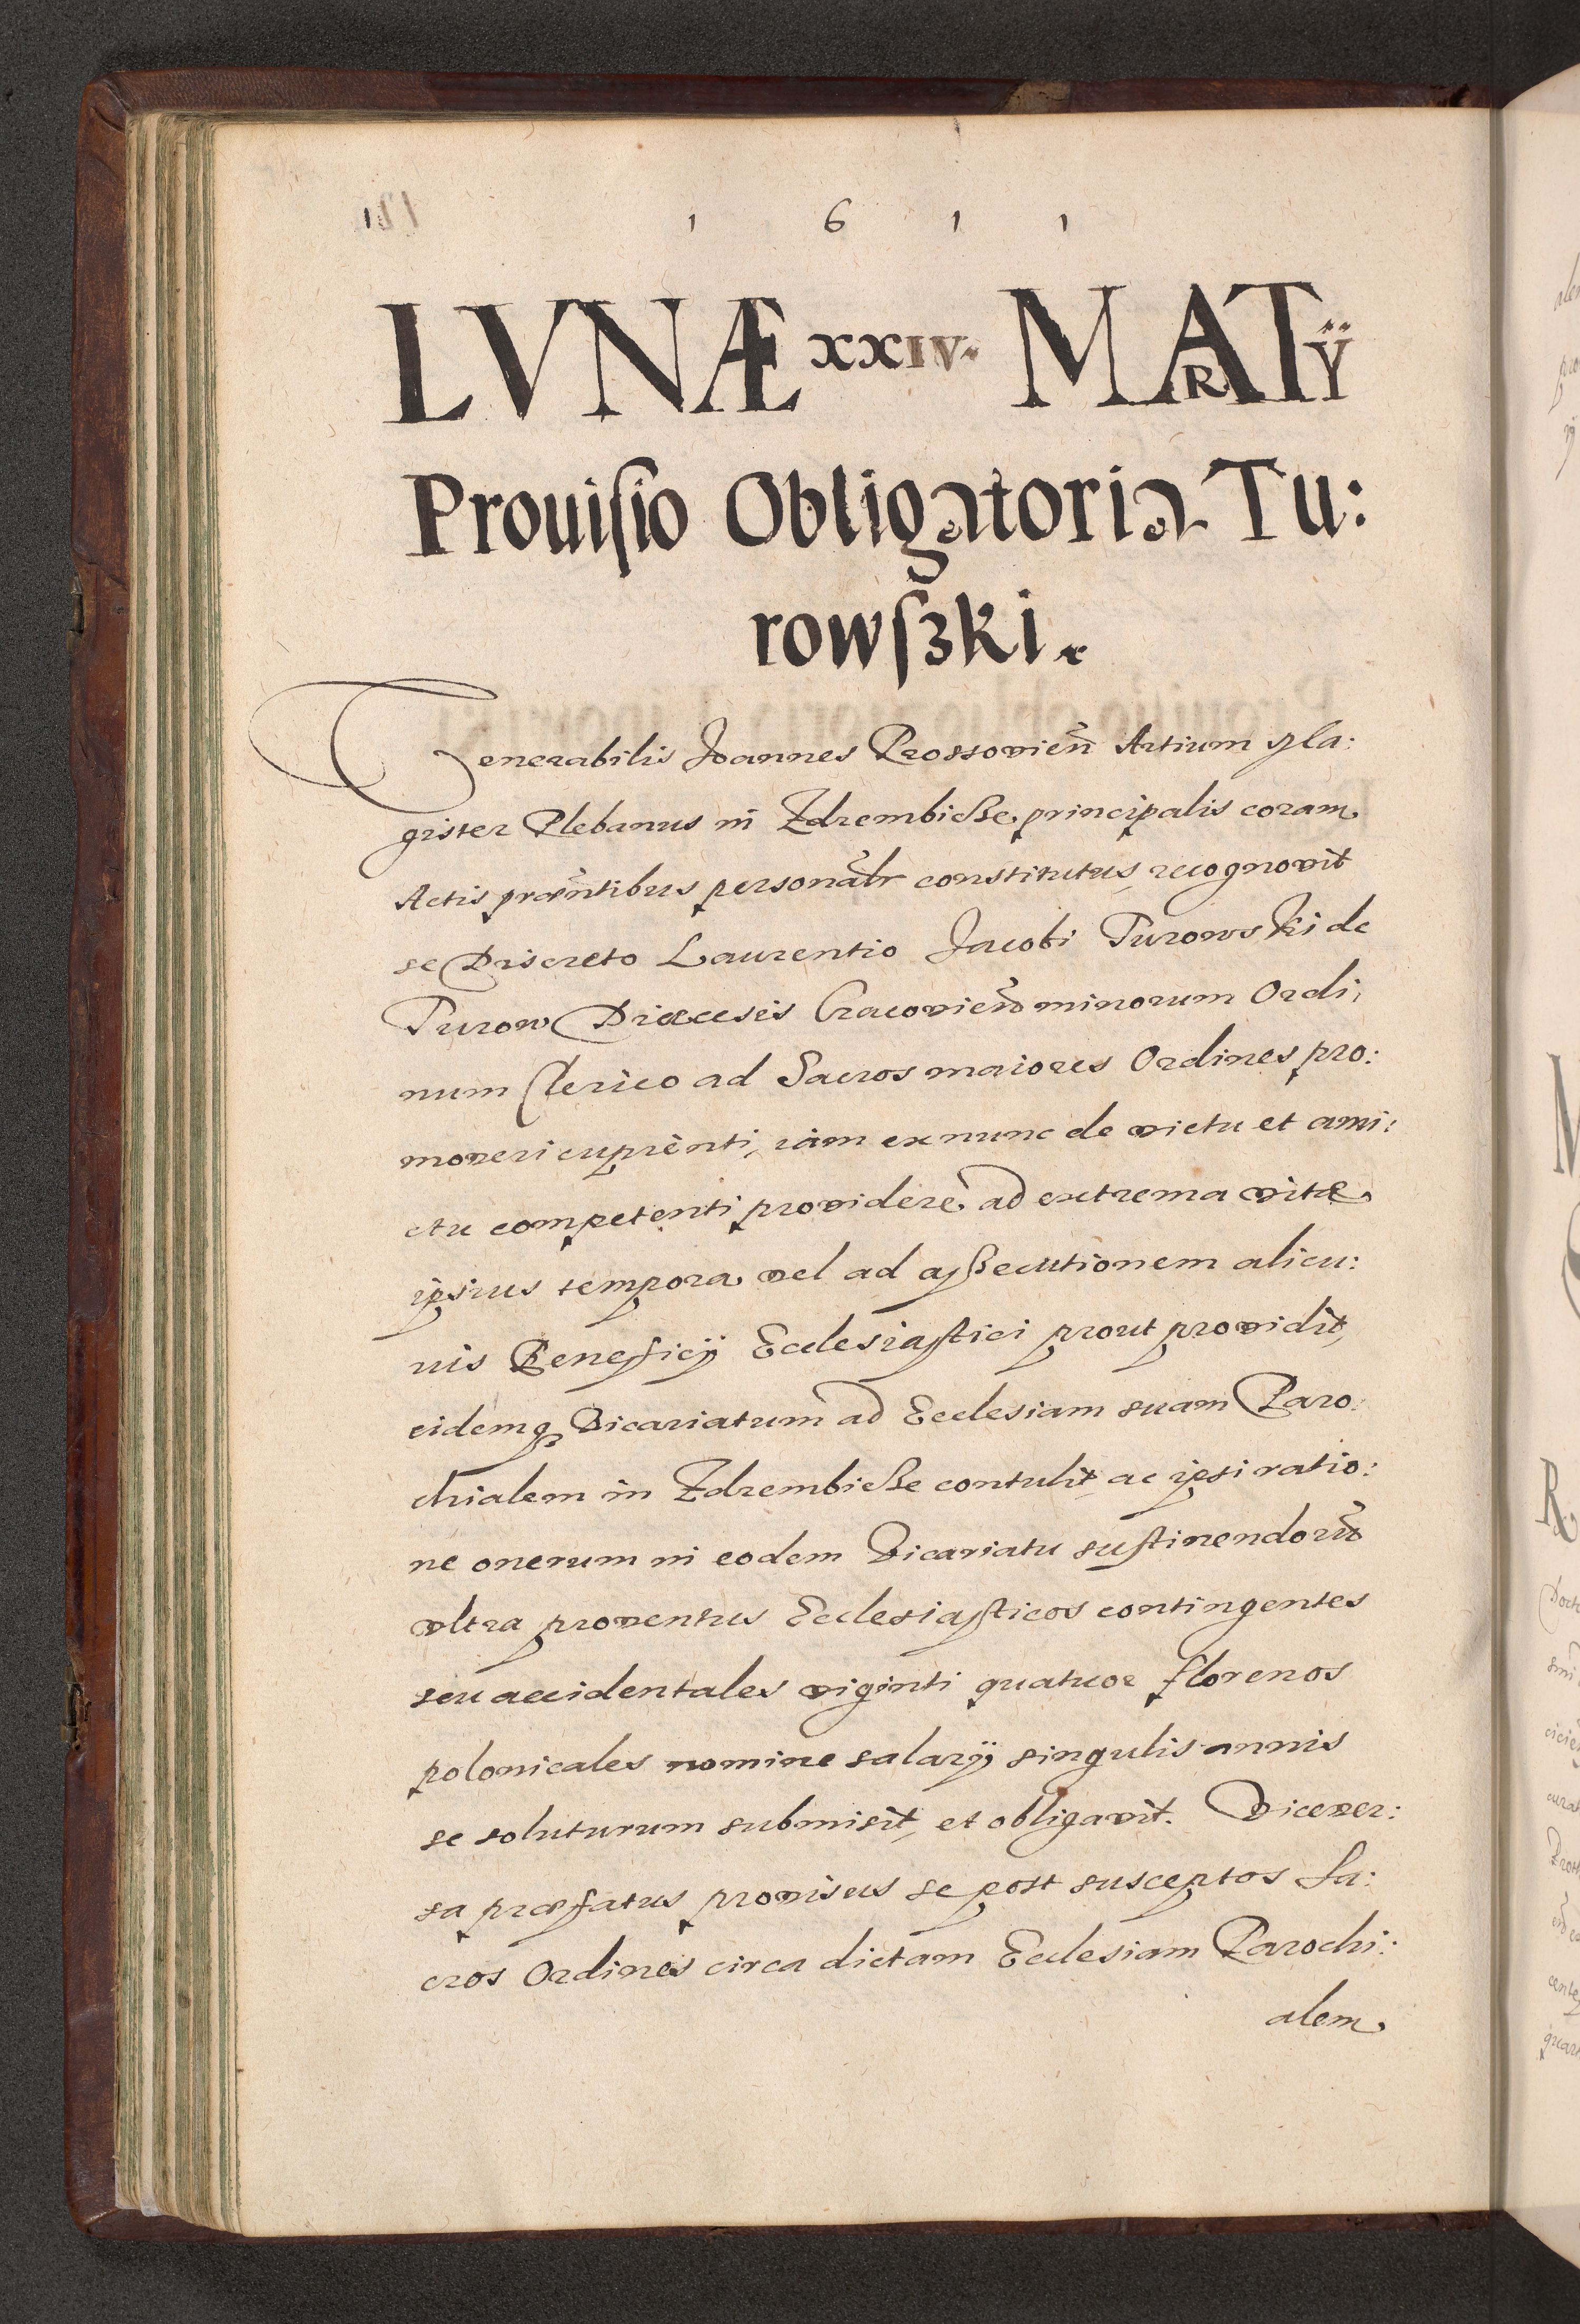 1 6 1 1
LVNÆ XXIV. MARTÿ
Prouiſio Obligatoria Tu:
rowſzki.
Venerabilis Joannes Prossovień Artium Ma:
gister Plebanus in Zdrembicße principalis coram
Actis præn̄tibus personalr̄ constitutus, recognovit
se Discreto Laurentio Jacobi Turowski de
Turow Diæcesis Cracovień minorum Ordi:
num Clerico ad Sacros maiores Ordines pro:
moveri cupienti, iam ex nunc de victu et ami:
ctu competenti providere, ad extrema vitæ
ipsius tempora vel ad aſsecutionem alicu:
uis Beneficÿ Ecclesiaſtici prout providit,
eidemq₃ Vicariatum ad Ecclesiam suam Paro:
chialem in Zdrembicße contulit, ac ipsi ratio:
ne onerum in eodem Vicariatu suſtinendorū
vltra proventus Ecclesiaſticos contingentes
seu accidentales viginti quatuor florenos
polonicales nomine salarÿ singulis annis
se soluturum submisit, et obligavit. Vicever:
sa præfatus provisus se post susceptos Sa:
cros Ordines circa dictam Ecclesiam Parochi:
alem